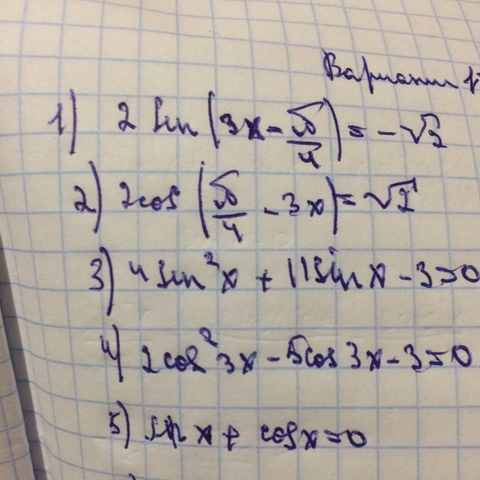 Вариант 1
1) 2 sin (3x - π/4) = -√2
2) 2cos (π/4 - 3x) = √2
3) 4 sin²x + 11 sin x - 3 = 0
4) 2cos²3x - 5cos 3x - 3 = 0
5) sin x + cos x = 0